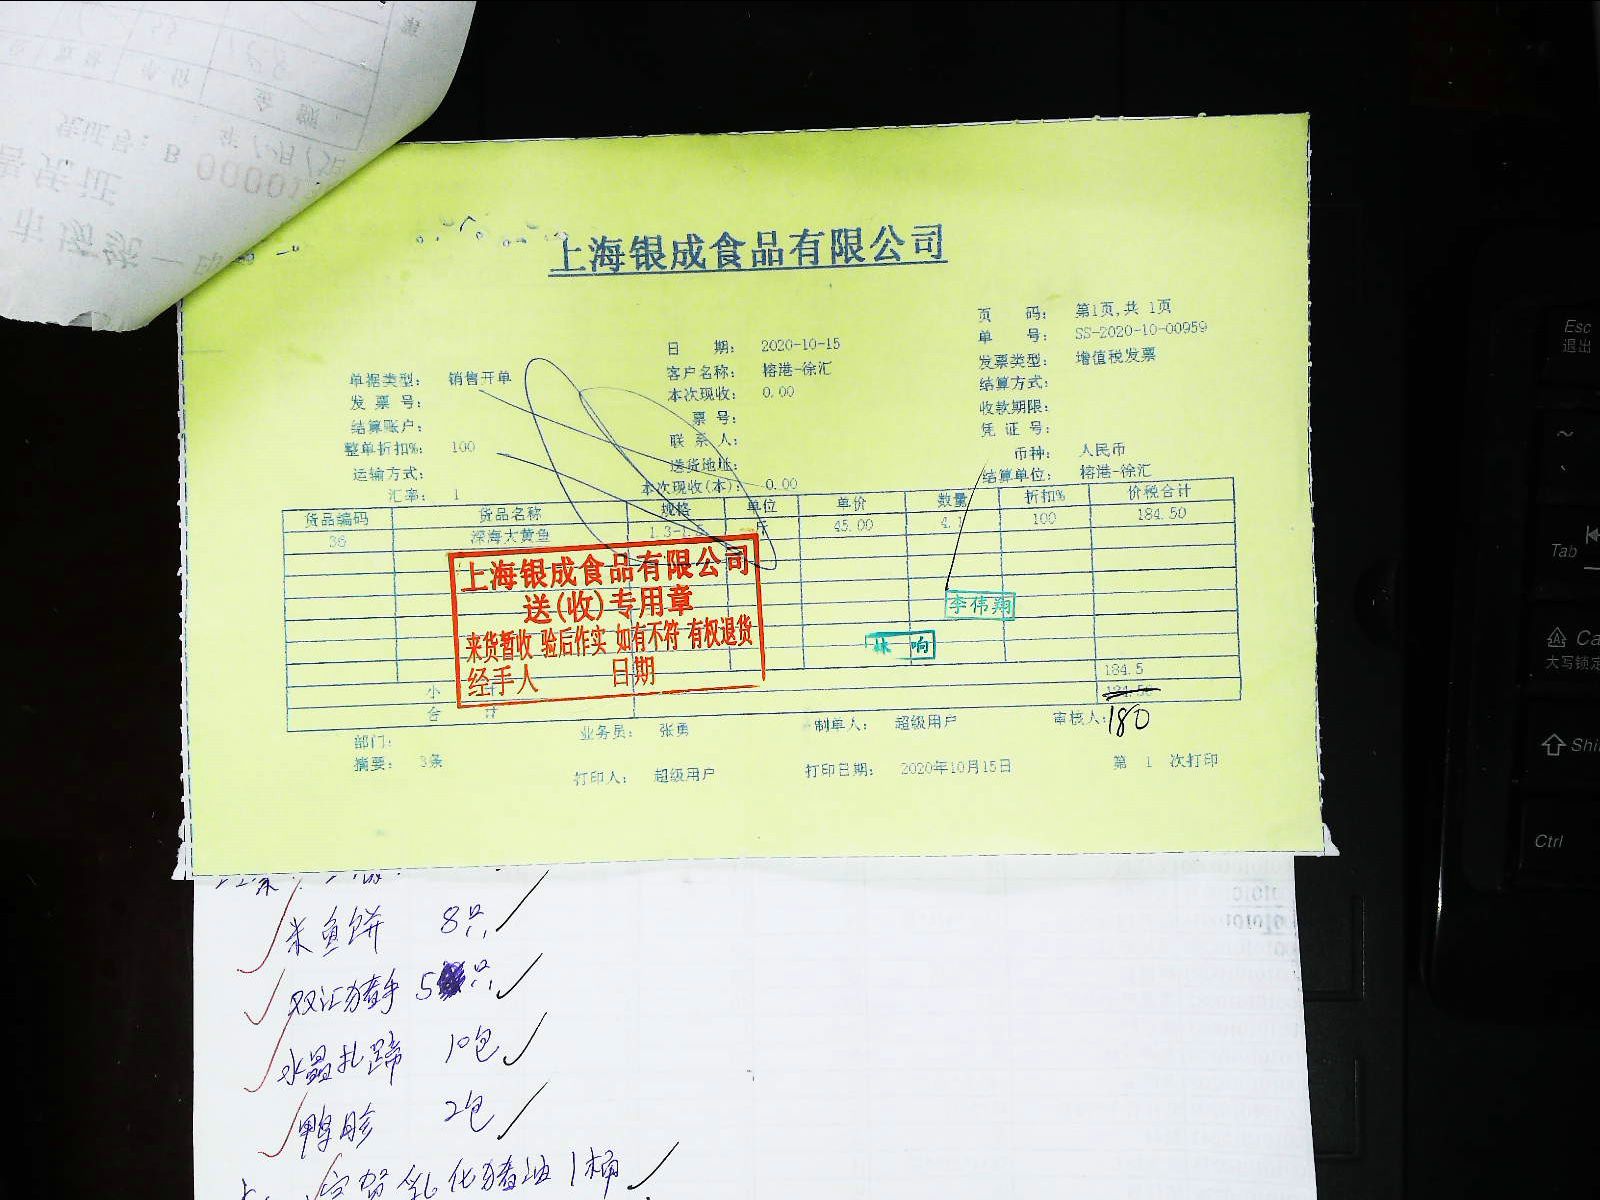 上海银成食品有限公司
页 码： 第1页,共 1页
单 号： SS-2020-10-00959
日 期： 2020-10-15
发票类型： 增值税发票
单据类型： 销售开单
客户名称： 榕港-徐汇
结算方式：
发 票 号：
本次现收： 0.00
收款期限：
结算账户：
票 号：
凭 证 号：
整单折扣%： 100
联 系 人：
币种： 人民币
运输方式：
送货地址：
结算单位： 榕港-徐汇
汇率： 1
本次现收(本)： 0.00
货品编码 货品名称 规格 单位 单价 数量 折扣% 价税合计
36 深海大黄鱼 斤 45.00 4.1 100 184.50
上海银成食品有限公司
送(收)专用章
来货暂收 验后作实 如有不符 有权退货
经手人 日期
李伟翔
响
小 184.5
合 计
180
部门： 业务员： 张勇 制单人： 超级用户 审核人：
摘要： 3条 打印人： 超级用户 打印日期： 2020年10月15日 第 1 次打印
米鱼饼 8只
双汇猪手 5只
水晶扎蹄 10包
鸭胗 2包
乳化猪油 1桶
Esc
退出
Tab
Ca
大写锁定
Shi
Ctrl